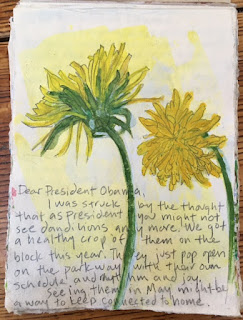 Dear President Obama,
I was struck by the thought
that as President you might not
see dandilions any more. We got
a healthy crop of them on the
block this year. They just pop open
on the parkway with their own
schedule and and joy.
Seeing them in May might be
a way to keep connected to home.